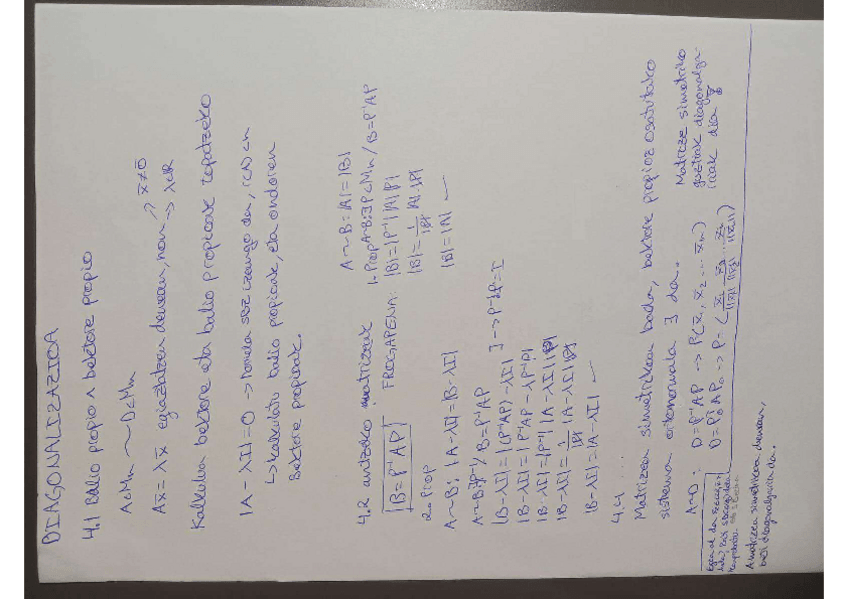 DIAGONALIZAZIOA
4.1 Balio propio ∧ bektore propio
A∈Mn ~ D∈Mn
Ax̄ = λx̄ egiaztatzen denean, non → x̄≠0̄
→ λ∈R
Kalkulua bektore eta balio propioak topatzeko
|A-λI|=0 →
↳ kalkulatu balio propioak, eta ondoren
bektore propioak.
4.2 antzeko matrizeak
|B=P⁻¹AP|
FROGAPENA:
A~B: |A|=|B|
1. Prop A~B: ∃P∈Mn / B=P⁻¹AP
|B|=|P⁻¹||A||P|
|B|=1/|P| |A|·|P|
|B|=|A|
2. Prop
A~B: |A-λI|=|B-λI|
A~B: ∃P⁻¹/ B=P⁻¹AP
|B-λI|=|(P⁻¹AP)-λI| I→P⁻¹·P=I
|B-λI|=|P⁻¹AP-λP⁻¹P|
|B-λI|=|P⁻¹||A-λI||P|
|B-λI|=1/|P| |A-λI||P|
|B-λI|=|A-λI|
4.4 ...
Matrizea simetrikoa bada, bektore propioz osatutako
sistema ortonormala ∃ da.
A~D: D=P⁻¹AP → P(x̄₁, x̄₂ ... x̄n)
D=P₀⁻¹AP₀ → P=(x̄₁/||x̄₁|| x̄₂/||x̄₂||
Matrize simetriko
guztiak diagonalga-
rriak dira
A matrizea simetrikoa denean,
beti diagonalgarria da.